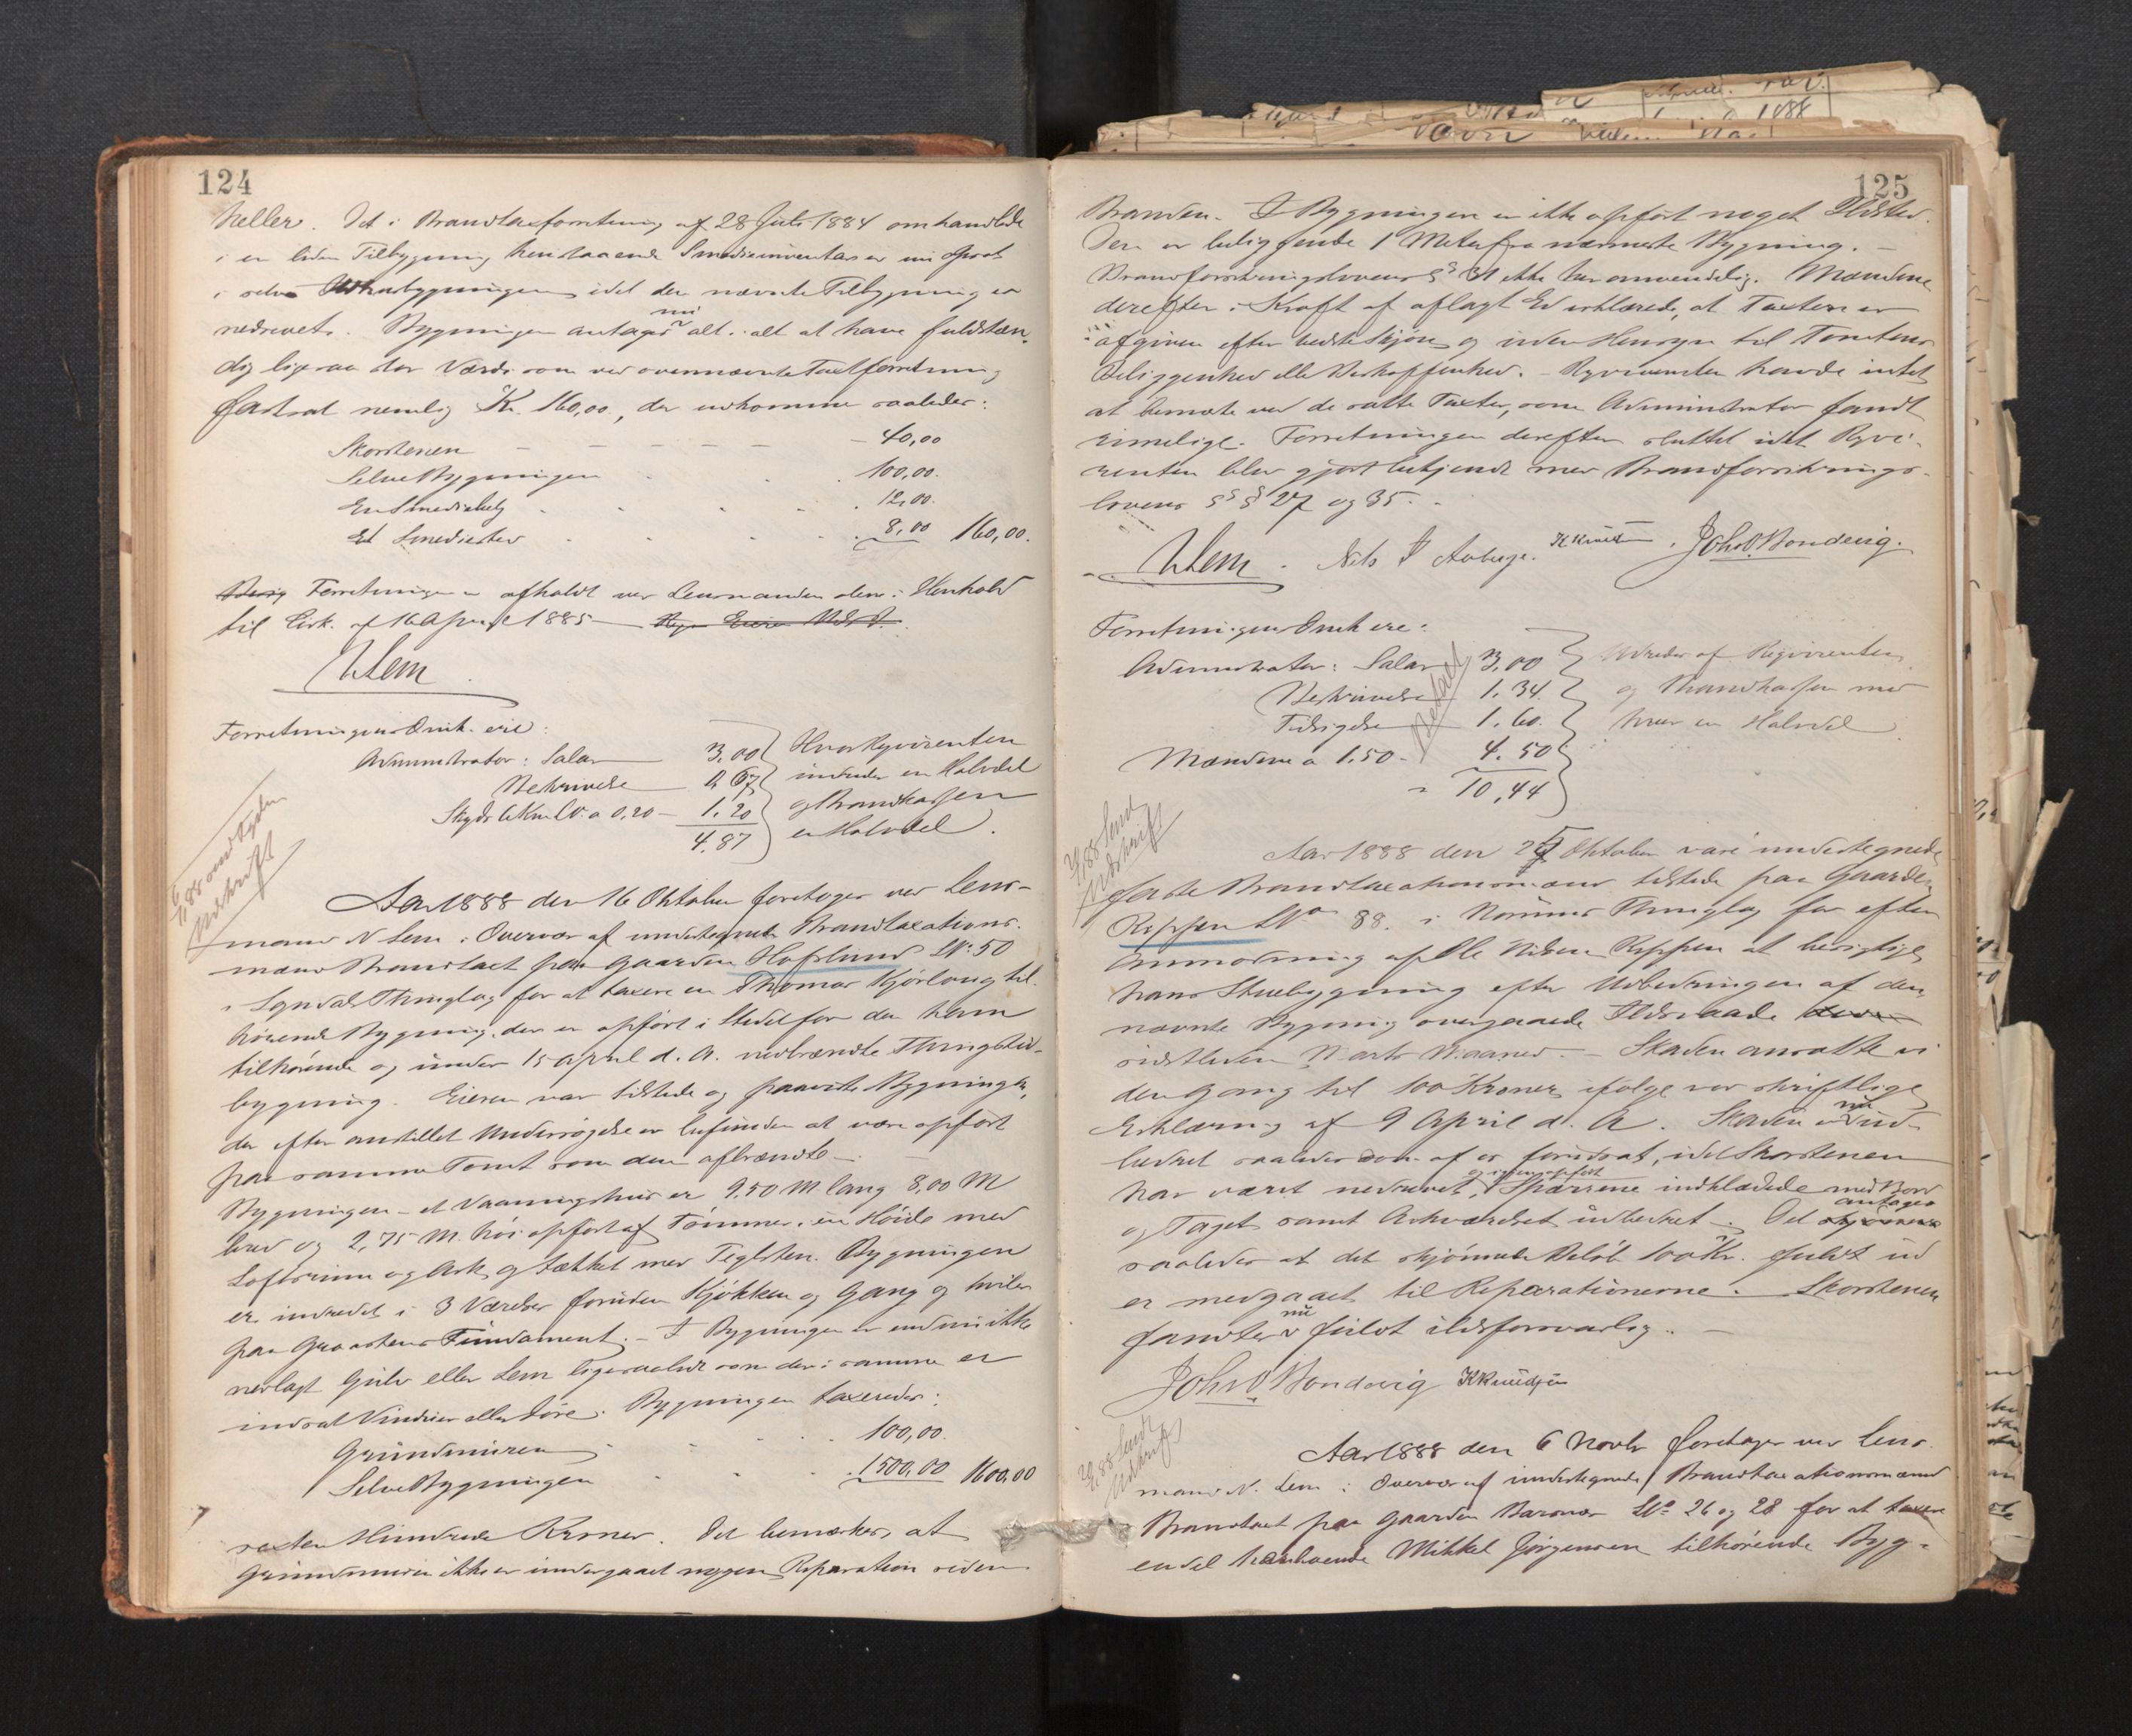 124
heller. Det i Brandtaxforretning af 28 Juli 1884 omhandlede
i en liden Tilbygning henstaaende Smedieinventar er nu opsat
i selve bygningen idet den nævnte Tilbygning er
nedrevet. Bygningen antages nu alt i alt at have fuldstæn-
dig ligesaa stor Værdi som ved ovennævnte Taxtforretning
fastsat nemlig Kr. 160,00, der udkomme saaledes:
Skorstenen 40,00
Selve Bygningen 100,00.
En Smediebelg 12,00.
Et Smediested 8,00 160,00.
Forretningen er afholdt ved Lensmanden alene i Henhold
til Cirk. af 16 April 1885
NLem
Forretningens Omk. ere:
Administrator: Salar 3,00 Hvor Rqvirenten
Beskrivelse 0,67 indreder en Halvdel
Skyds 6 Km LV. a 0,20 – 1,20 og Brandkassen
4,87 en Halvdel.
Udskrift
Aar 1888 den 16 Oktober foretoges ved Lens-
mand N Lem i Overvær af undertegnede Brandtaxations-
mænd Brandtaxt paa Gaarden Hofslund LN: 50
i Sogndal Thinglag for at taxere en Thomas Kjørlaug til-
hørende Bygning, der er opført i Stedet for den ham
tilhørende og under 15 April d. A. nedbrændte Thingsted-
bygning. Eieren var tilstede og paaviste Bygningen,
der efter anstillet Undersøgelse er befunden at være opført
paa samme Tomt som den afbrændte –
Bygningen – et Vaaningshus er 9,50 M lang 8,00 M
bred og 2,75 M. høi opført af Tømmer i en Høide med
Loftsrum og Ark og tækket med Teglsten. Bygningen
er indredet i 3 Værelser foruden Kjøkken og Gang og hviler
paa Graastens Fundament. – I Bygningen er endnu ikke
nedlagt Gulv eller Lem ligesaalidt som der i samme er
indsat Vinduer eller Døre. Bygningen taxeredes:
Grundmuren 100,00.
Selve Bygningen 1500,00 1600,00
sexten Hundrede Kroner. Det bemærkes, at
Grundmuren ikke er undergaaet nogen Reparation siden
125
Branden. I Bygningen er ikke opført noget Ildsted.
Den er beliggende 1 Meter fra nærmeste Bygning. –
Brandforsikringslovens § 31 ikke her anvendelig. Mændene
derefter i Kraft af aflagt Ed erklærede, at Taxten er
afgiven efter bedste Skjøn og uden Hensyn til Tomtens
Beliggenhed eller Beskaffenhed. – Rqvirenten havde intet
at bemærke ved de satte Taxter, som Administrator fandt
rimelige. Forretningen derefter sluttet idet Rqvi-
renten blev gjort bekjendt med Brandforsikrings-
lovens §§ 27 og 35.
NLem. Nels I Aaberge. K Knudsen. Joh. O. Bondevig.
Forretningens Omk ere:
Administrator: Salar 3,00 Udredes af Reqvirenten
Beskrivelse 1.34 og Brandkassen med
Tilsigelse 1.60. hver en Halvdel
Mændene a 1.50 – 4.50
10,44
Betalt
Udskrift
Aar 1888 den 25 Oktober vare undertegnede
faste Brandtaxationsmænd tilstede paa Gaarden
Rippen LNo 88. i Thinglag for efter
Anmodning af Ole Nilsen Rippen at besigtige
hans Stuebygning efter Udbedringen af den
nævnte Bygning overgaaede Ildsvaade
sidstleden Marts Maaned. – Skaden ansatte vi
den Gang til 100 Kroner ifølge vor skriftlige
Erklæring af 9 April d. A. Skaden er nu ud-
bedret saaledes som af os forudsat, idet Skorstenen
har været nedrevet, og igjen opført Spærrene indklædede med Bord
og Taget samt Arkværket udbedret. Det antages
saaledes at det skjønnede Beløb 100 Kr. fuldt ud
er medgaaet til Reparationerne. Skorstenen
fandtes nu fuldt ildsforsvarlig. –
Joh O Bondevig K Knudsen
Udskrift
Aar 1888 den 6 Novbr foretoges ved Lens-
mand N. Lem i Overvær af undertegnede Brandtaxationsmænd
Brandtaxt paa Gaarden Barsnes LNo 26 og 28 for at taxere
endel Mikkel Jørgensen tilhørende Byg-